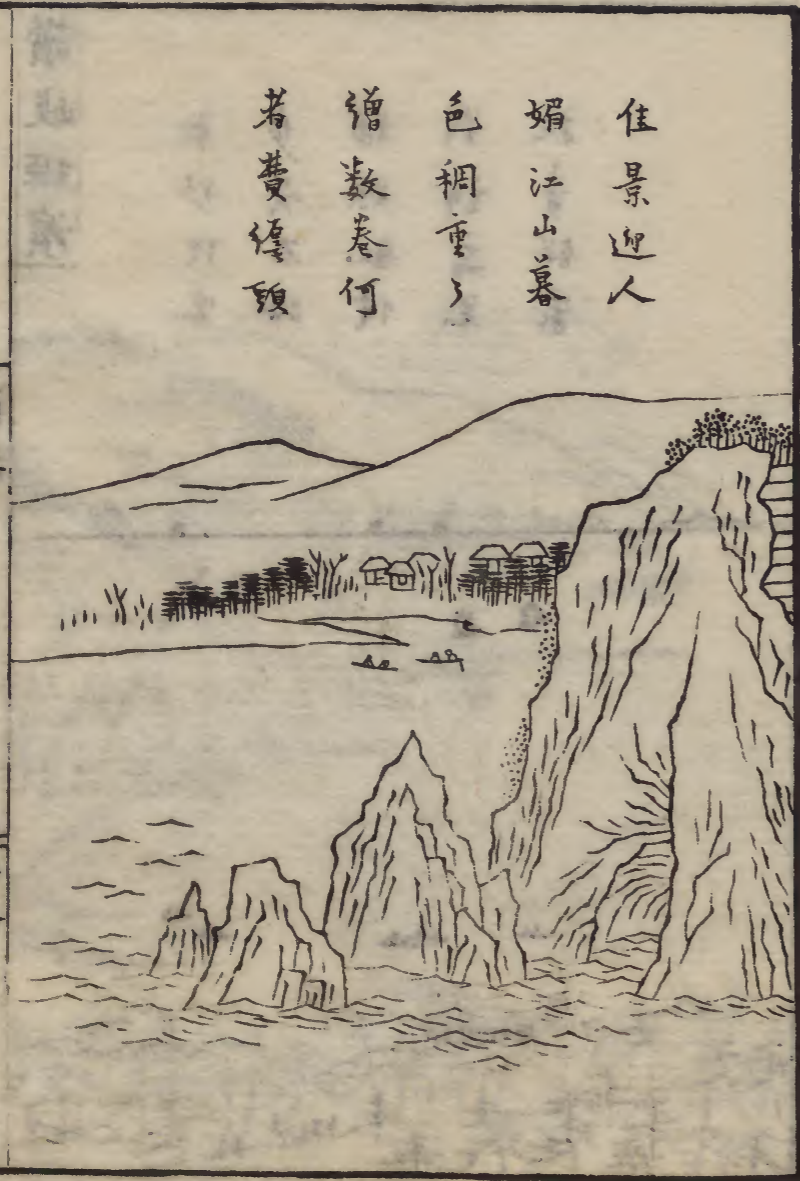 佳景迎人
媚江山暮
色稠重々
繒数巻何
者費纏頭